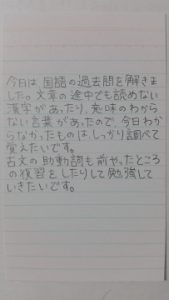 今日は、国語の過去問を解きま
した。文章の途中でも読めない
漢字があったり、意味のわから
ない言葉があったので、今日わか
らなかったものは、しっかり調べて
覚えたいです。
古文の助動詞も前やったところ
の復習をしたりして勉強して
いきたいです。